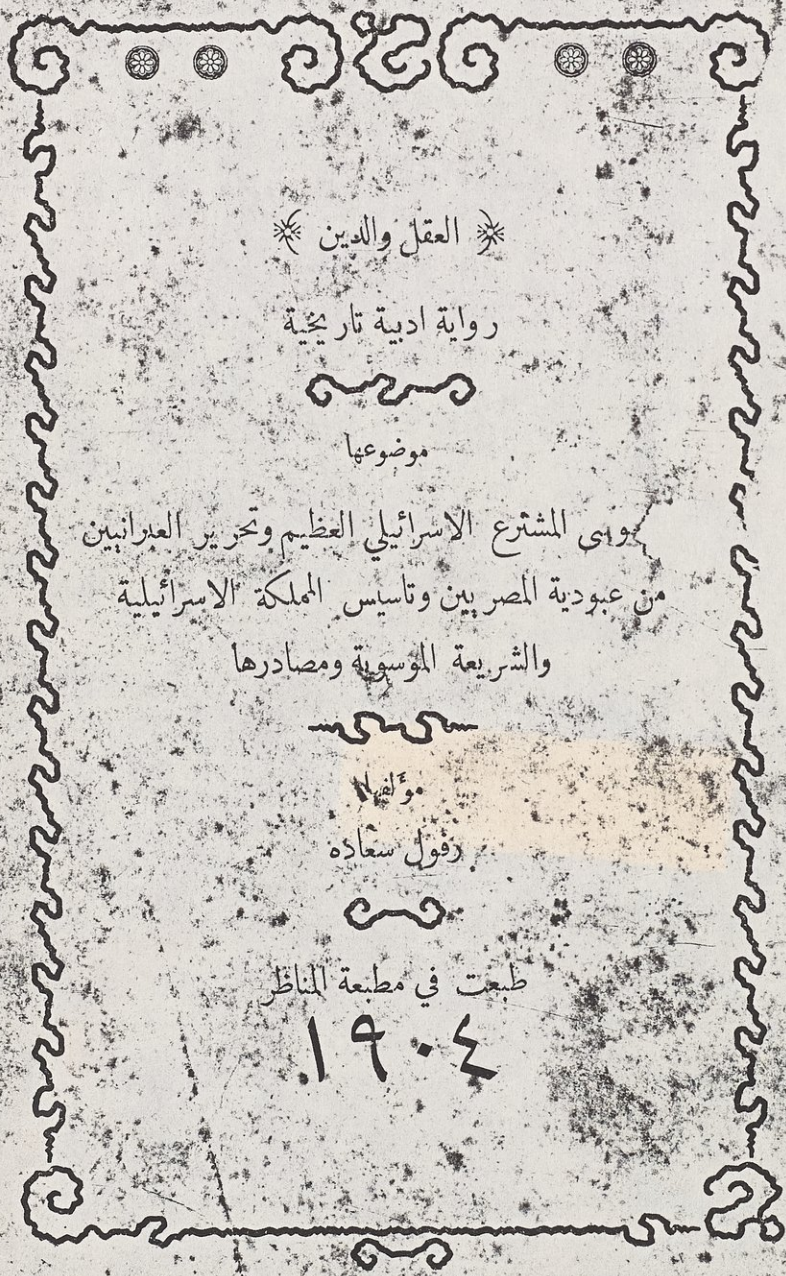 العقل والدين
رواية ادبية تاريخية
موضوعها
موسى المشترع الاسرائيلي العظيم وتحرير العبرانيين
من عبودية المصريين وتاسيس المملكة الاسرائيلية
والشريعة الموسوية ومصادرها
مؤلفها
رفول سعاده
طبعت في مطبعة المناظر
١٩٠٤